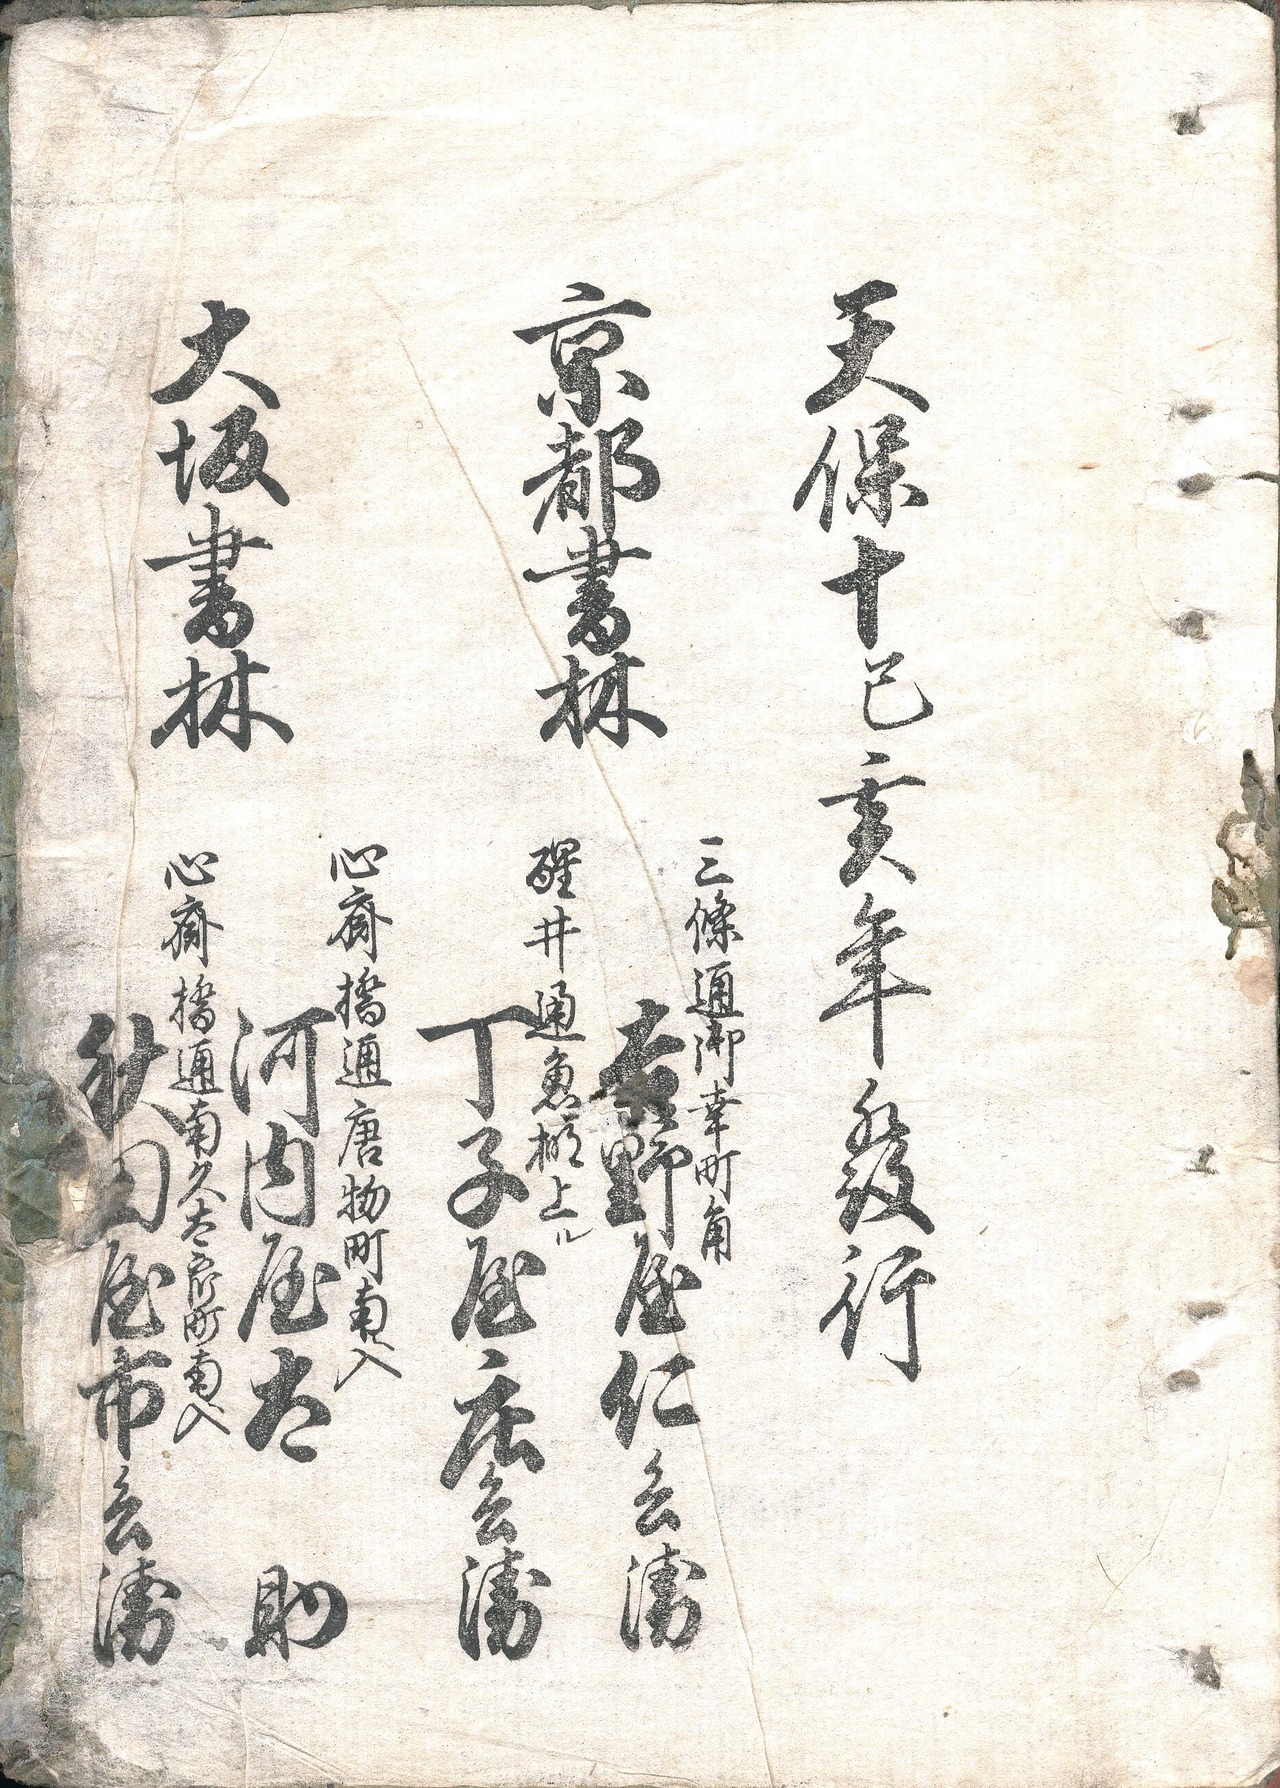 天保十己亥年發行
京都書林
三條通御幸町角
吉野屋仁兵衛
醒井通魚棚上ル
丁子屋庄兵衛
大坂書林
心齋橋通唐物町南ヘ入
河内屋太助
心齋橋通南久太郎町南ヘ入
秋田屋市兵衛